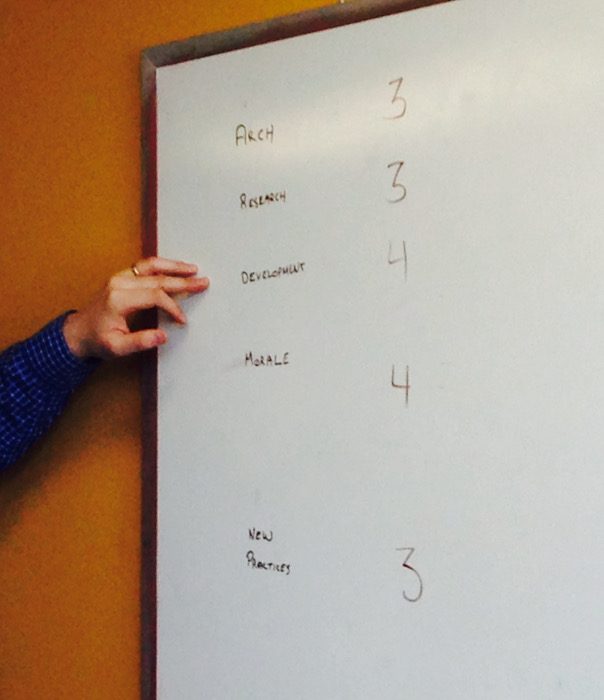 ARCH 3
RESEARCH 3
DEVELOPMENT 4
MORALE 4
NEW
PRACTICES 3